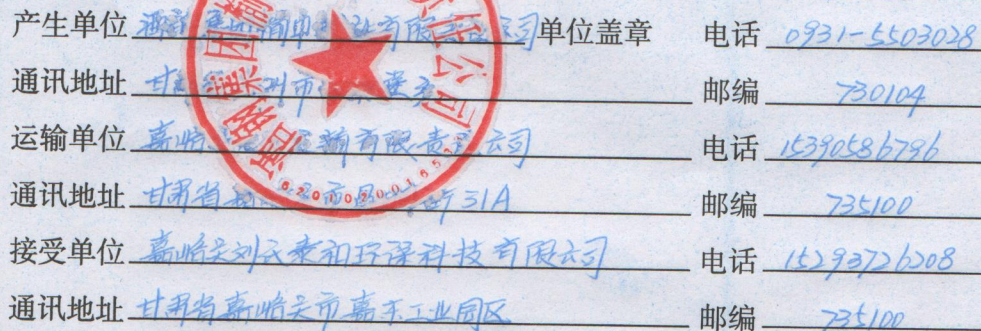 产生单位 酒钢集团榆中钢铁有限责任公司 单位盖章 电话 0931-5503028
通讯地址 甘 州市 邮编 730104
运输单位 嘉峪 输有限责任公司 电话 15390586796
通讯地址 甘肃省 市 31A 邮编 735100
接受单位 嘉峪关刘氏泰和环保科技有限公司 电话 15293726208
通讯地址 甘肃省嘉峪关市嘉东工业园区 邮编 735100